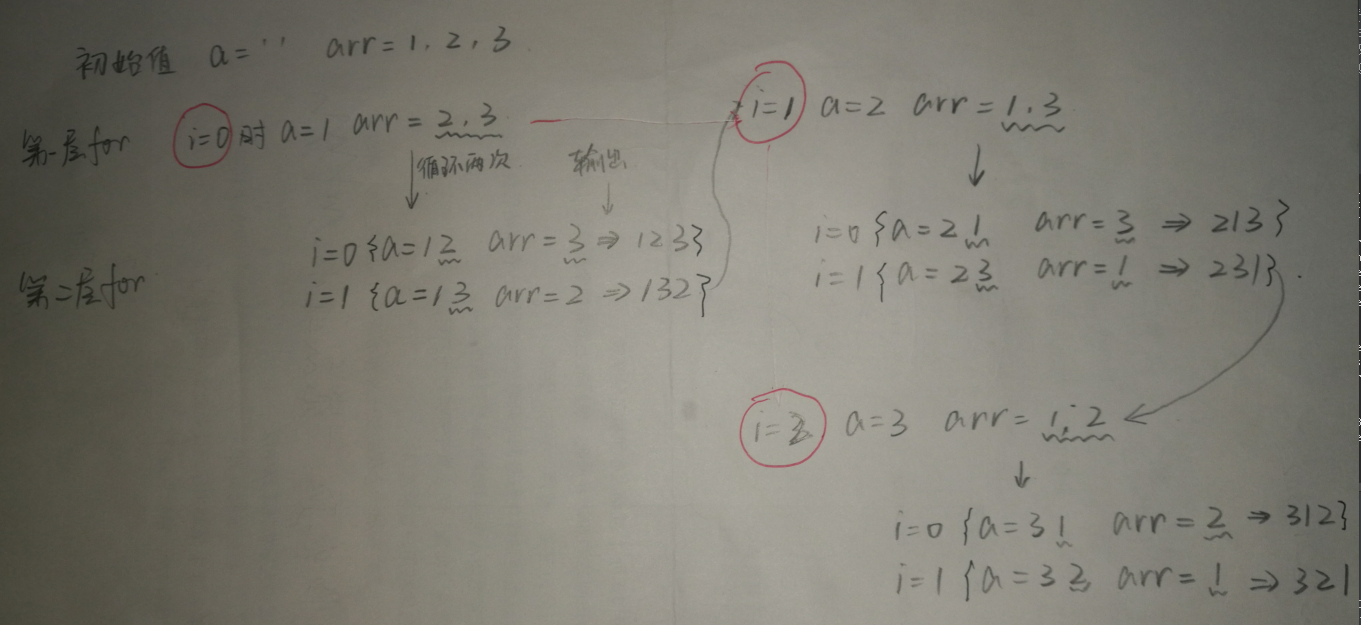 初始值 a='' arr=1,2,3
第一层for i=0时 a=1 arr=2,3
i=1 a=2 arr=1,3
循环两次 输出
i=0{a=12 arr=3⇒123}
第二层for
i=1{a=13 arr=2⇒132}
i=0{a=21 arr=3⇒213}
i=1{a=23 arr=1⇒231}.
i=2 a=3 arr=1,2
i=0{a=31 arr=2⇒312}
i=1{a=32 arr=1⇒321